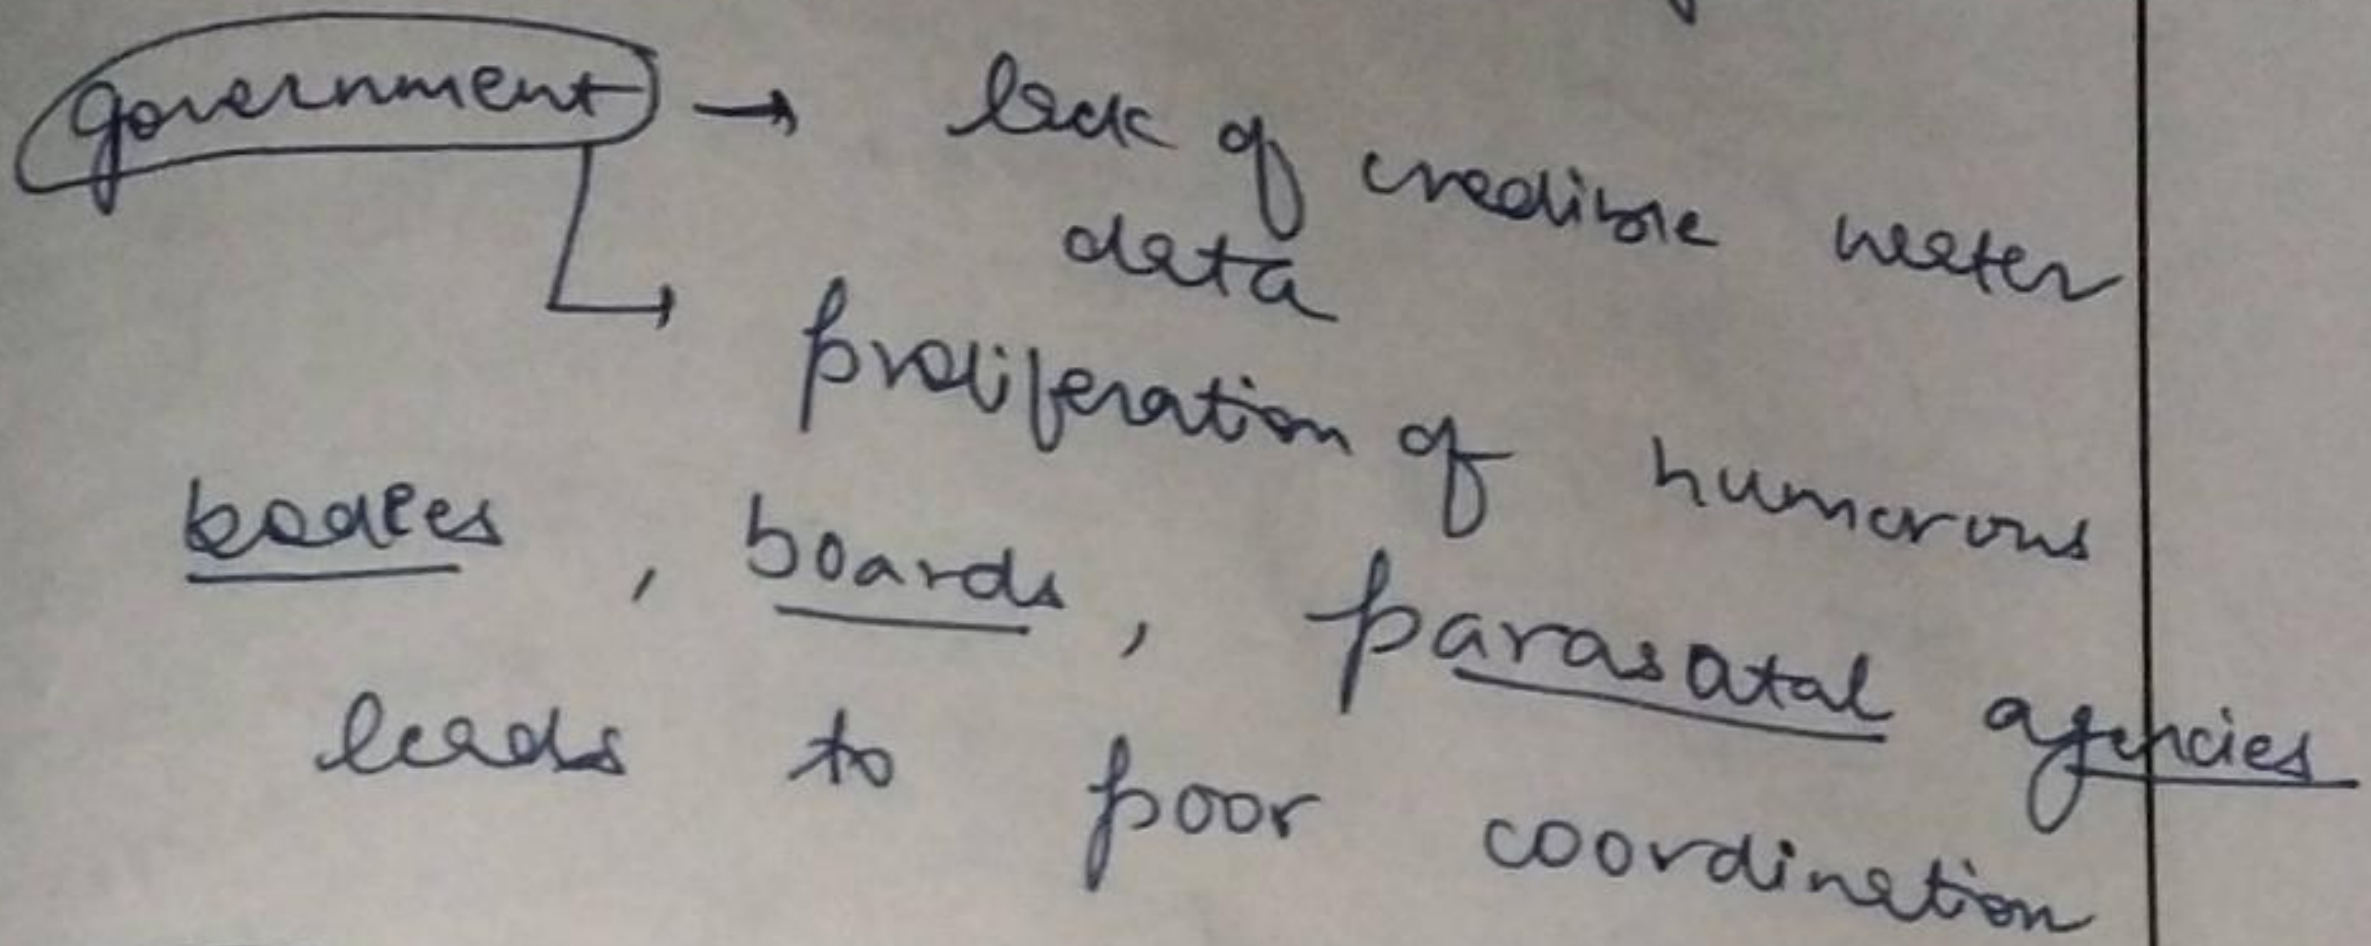 government → lack of credible water
data
↳ proliferation of humerous
bodies, boards, parasatal agencies
leads to poor coordination